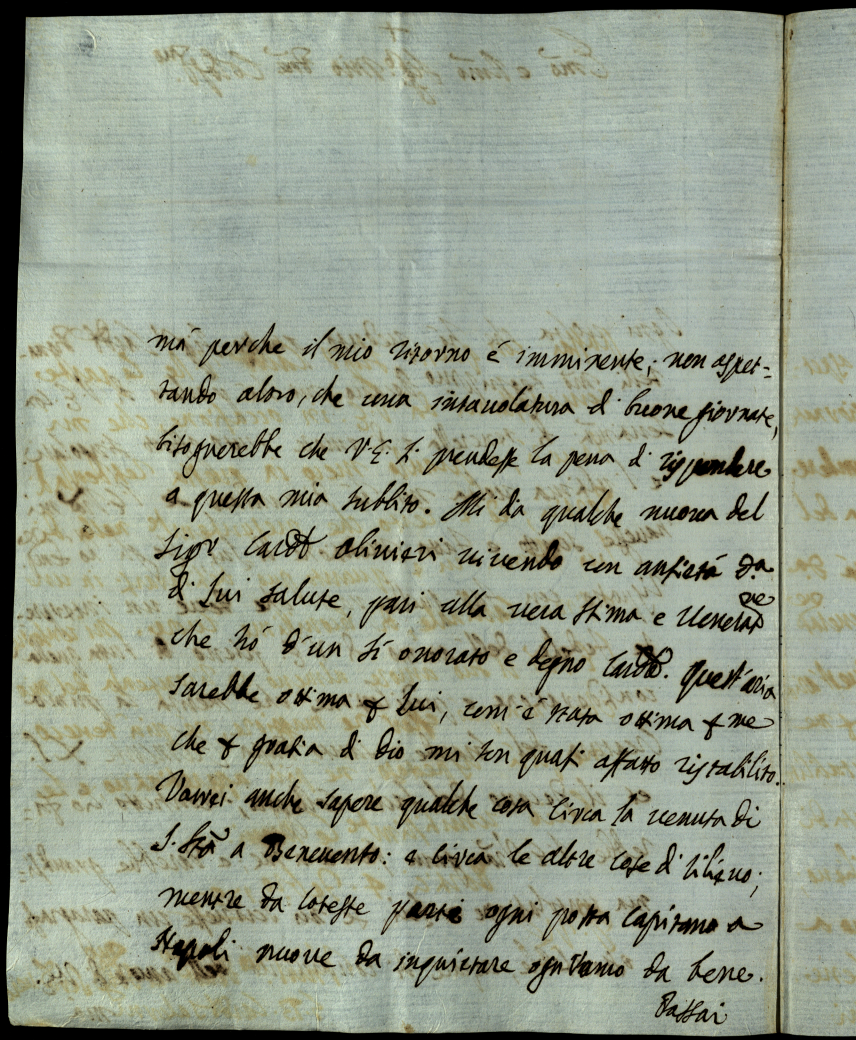 mà perche il mio ritorno è imminente; non aspet=
tando altro, che una intavolatura di buone giornate,
bisognerebbe che V. E. prendesse la pena di rispondere
a questa mia subbito. Mi dia qualche nuova del
Sigr Cardl Olivieri vivendo con ansietà da
di lui salute, pari alla vera stima e venerazne
che hò d'un sì onorato e degno Cardl. quest'aria
sarebbe ottima p lui, com'è stata ottima p me
che p gratia di Dio mi son quasi affatto ristabilito.
Vorrei anche sapere qualche cosa circa la venuta di
S. Stà a Benevento: e circa le altre cose di rilievo;
mentre da coteste parti ogni posta capitano a
Napoli nuove da inquietare ogn'Uomo da bene.
Passai